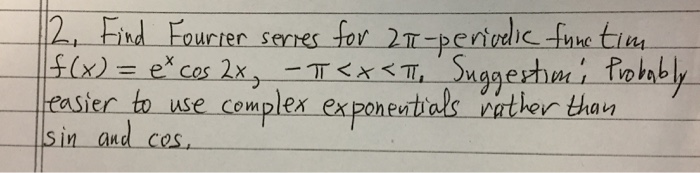 2, Find Fourier series for 2π-periodic function
f(x) = eˣ cos 2x, -π<x<π. Suggestion; Probably
easier to use complex exponentials rather than
sin and cos.